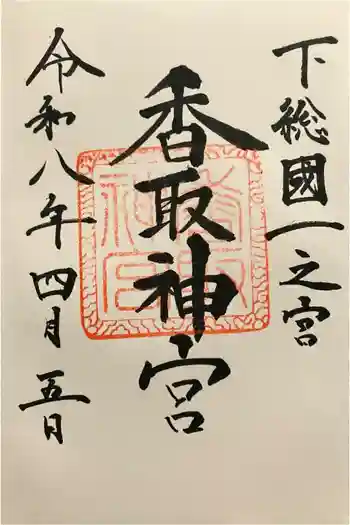 下総國一之宮
香取神宮
令和八年四月五日